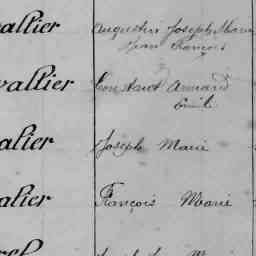 vallier Augustin Joseph Marie
Jean François
vallier Constant Armand
Emile
alier Joseph Marie
alier François Marie